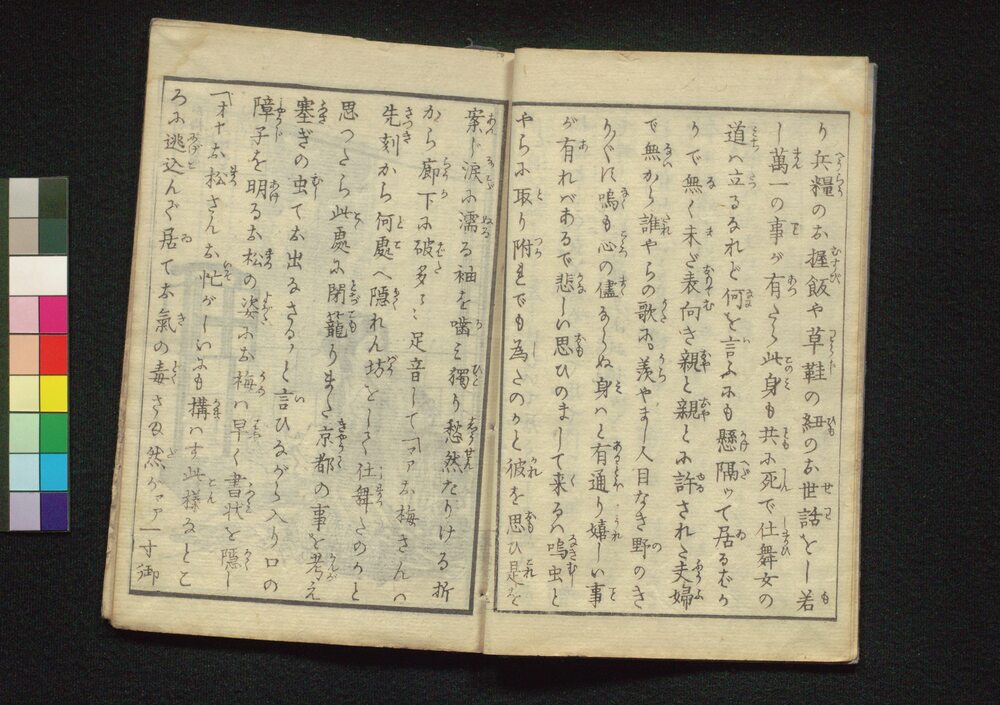 り兵糧のお握飯や草鞋の紐のお世話をし若
し萬一の事が有たら此身も共に死で仕舞女の
道ハ立るなれど何を言ふにも懸隔ッて居るばか
りで無く未だ表向き親と親とに許された夫婦
で無から誰やらの歌にも羨やまし人目なき野のき
り〲す鳴も心の儘ならぬ身ハと有通り嬉しい事
が有れべあるで悲しい思ひのまして来るハ鳴虫と
やらに取り附れでも為たのかと彼を思ひ是を
案じ涙に濡る袖を噛ミ獨り愁然たりける折
から廊下に破多〻〻足音して「アヽお梅さんハ
先刻から何處へ隠れん坊をして仕舞たのかと
思つたら此處に閉籠りました京都の事を考え
塞ぎの虫でお出なさるかと言ひながら入り口の
障子を明るお松の姿にお梅ハ早く書状を隠し
「オヤお松さんお忙がしいにも構はず此樣なとこ
ろに逃込んで居てお氣の毒さま然がアヽ一寸御